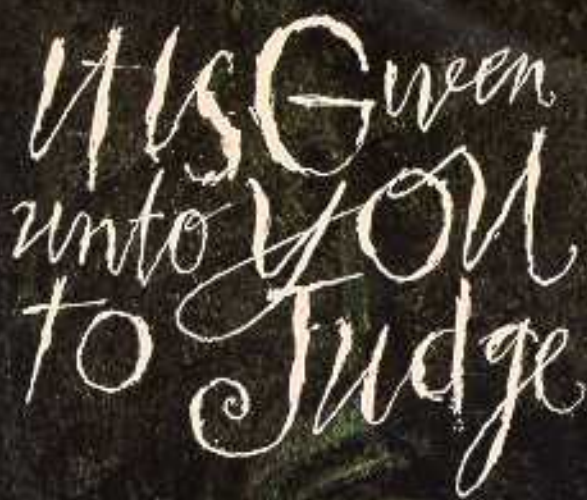 It Is Given
unto You
to Judge